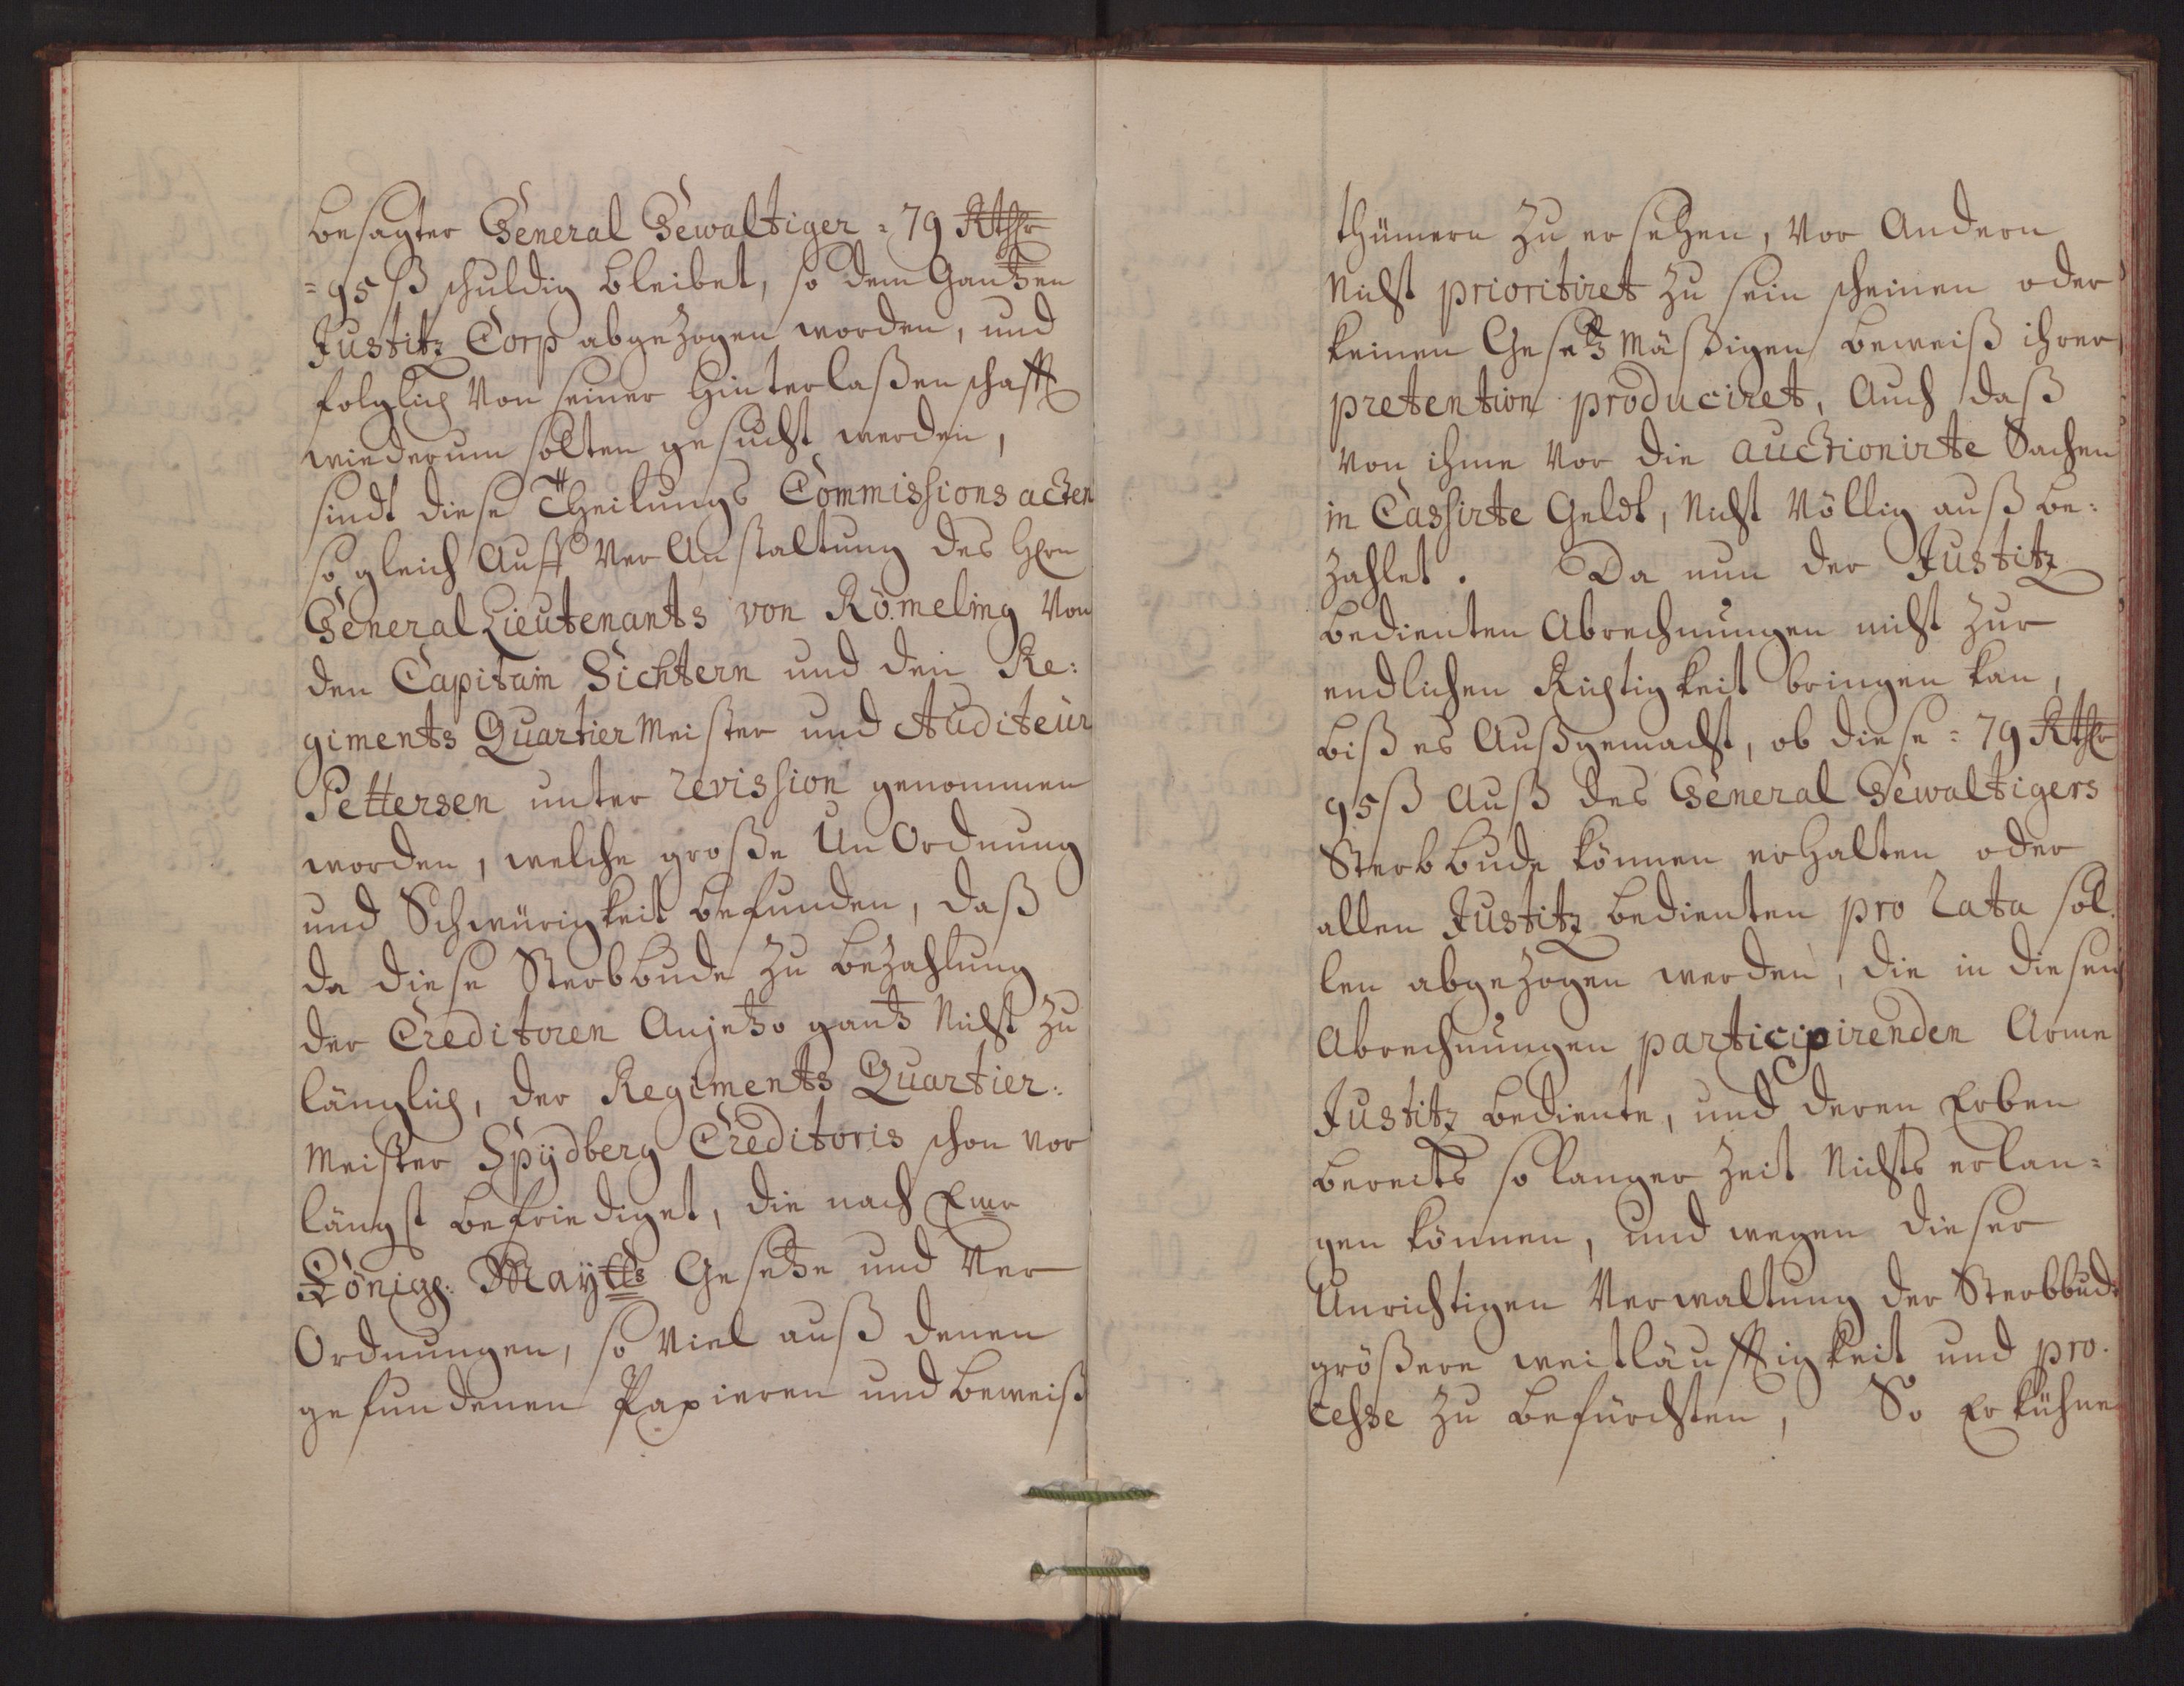 besagter General Gewaltiger = 79 Rthlr
= 95 ß schuldig bleibet, so dem Gantzen
Justitz Corp abgezogen worden, und
folglich von seiner Hinterlaßenschafft
wiederum solten gesucht werden,
sindt diese Theilungs Commissions acten
so gleich Auff Ver Anstaltung des Hhrn
General Lieutenants von Römeling von
den Capitain Sichtern und den Re:
giments Quartier Meister und Auditeur
Pettersen unter revission genommen
worden, welche große Un Ordnung
und Schwürigkeit befunden, daß
da diese Sterbbude zu bezahlung
der Creditoren Anjetzo gantz Nicht zu
länglich, der Regiments Quartier:
Meister Spydberg Creditoris schon vor
längst befriediget, die nach Ewr
Königl: Maytts Gesetze und Ver
Ordnungen, so viel auß denen
gefundenen Papieren und beweiß
thümern zu ersehen, vor Andern
Nicht prioritiret zu sein scheinen oder
keinen Gesetz Mäßigen beweiß ihrer
pretention produciret, Auch daß
von ihme vor die auctionirte Sachen
in Cassirte Geldt, Nicht Völlig auß be:
zahlet. Da nun der Justitz
bedienten Abrechnungen nicht zur
endlichen Richtigkeit bringen kan,
biß es Außgemacht, ob diese = 79 Rthlr
95 ß Auß des General Gewaltigers
Sterbbude können erhalten oder
allen Justitz bedienten pro Rata sol.
len abgezogen werden, die in diesen
Abrechnungen participirenden Arme
Justitz bediente, und deren Erben
bereits so langer Zeit Nichts erlan=
gen können, und wegen dieser
Unrichtigen Verwaltung der Sterbbude
größere weitläufftigkeit und pro.
cesse zu befürchten, So Erkühne